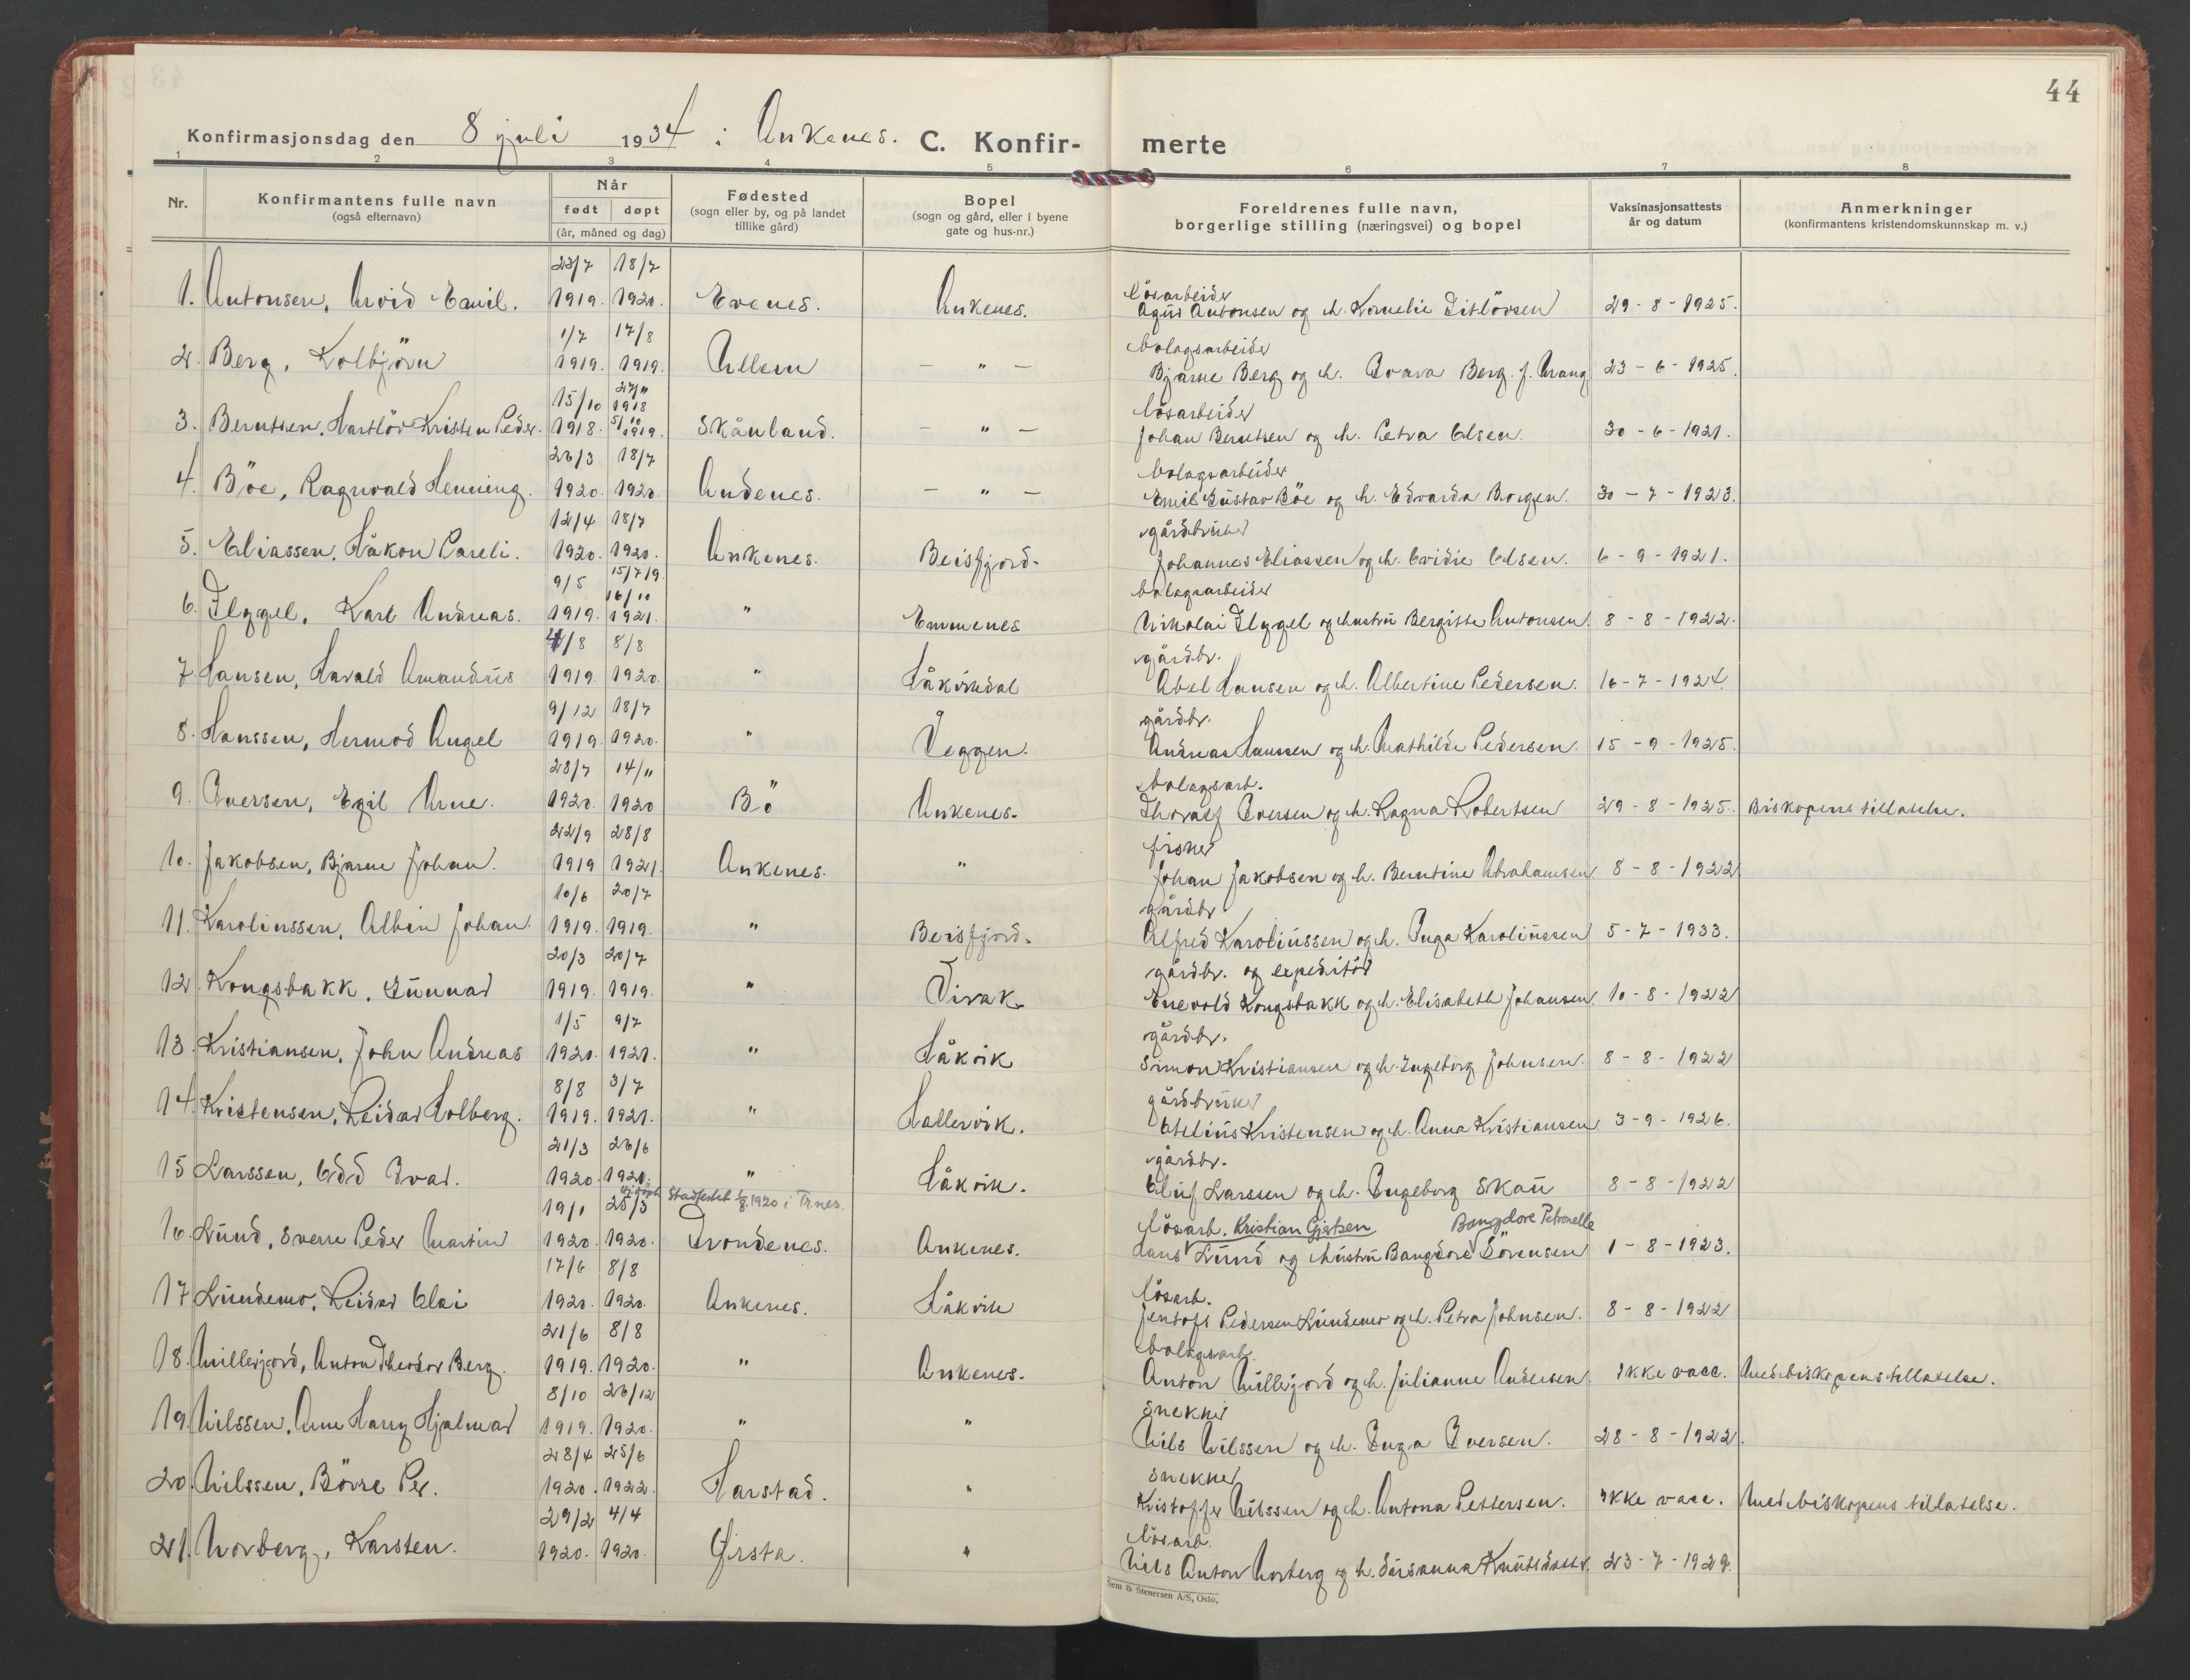 44
Konfirmasjonsdag den 8 juli 1934 i Ankenes. C. Konfirmerte
1 2 3 4 5 6 7 8
Nr. Konfirmantens fulle navn (også efternavn) Når født døpt (år, måned og dag) Fødested (sogn eller by, og på landet tillike gård) Bopel (sogn og gård, eller i byene gate og hus-nr.) Foreldrenes fulle navn, borgerlige stilling (næringsvei) og bopel Vaksinasjonsattests år og datum Anmerkninger (konfirmantens kristendomskunnskap m. v.)
23/7 18/7 løsarbeider
1. Antonsen, Arvid Emil. 1919. 1920. Evenes. Ankenes. Antonsen og h. Kornelie Ditlövsen 29-8-1925.
1/7 17/8 bolagsarbeider
2. Berg, Kolbjörn 1919. 1919. - " - Bjarne Berg og h. Berg. f. Vrang 23-6-1925.
15/10 27/11 1918 lösarbeider
3. Berntsen, Hartlöv Kristen Peder. 1918. 5/10 1919. Skånland. - " - Johan Berntsen og h. Petra Olsen. 30-6-1921.
26/3 18/7 bolagsarbeider
4. Böe, Ragnvald Henning. 1920. 1920 Andenes. - " - Emil Gustav Böe og h. Edvarda Borgen. 30-7-1923.
12/4 18/7 gårdbruker
5. Eliassen, Håkon Pareli. 1920. 1920. Ankenes. Beisfjord. Johannes Eliassen og h. Ovidie Olsen. 6-9-1921.
9/5 15/7/9 16/10 bolagsarbeider
6. Flygel, Karl Andreas. 1919. 1921. " Emmenes Nikolai Flygel og hustru Bergitte Antonsen. 8-8-1922.
4/8 8/8 gårdbr.
7. Hansen, Harald Amandus 1919 1920. " Håkvikdal Abel Hansen og h. Albertine Pedersen. 16-7-1924.
9/12 18/7 gårdbr.
8. Hanssen, Hermod Angel 1919. 1920. " Veggen. Andreas Hanssen og h. Mathilde Pedersen. 15-9-1925.
28/7 14/11 bolagsarb.
9. Iversen, Egil Arne. 1920. 1920 Bö Ankenes. Thoralf Iversen og h. Ragna Robertsen 29-8-1925. Biskopens tillatelse.
22/9 28/8 fisker
10. Jakobsen, Bjarne Johan. 1919 1921. Ankenes. " Johan Jakobsen og h. Berntine Abrahamsen. 8-8-1922
10/6 20/7 gårdbr
11. Karolinssen, Albin Johan. 1919. 1919. " Beisfjord. Alfred Karolinssen og h. Inga Karolinssen 5-7-1933.
20/3 20/7 gårdbr. og expeditør
12. Kongsbakk, Gunnar 1919. 1919. " Virak. Enevold Kongsbakk og h. Elisabeth Johansen. 10-8-1922
1/5 9/7 gårdbr.
13. Kristiansen, John Andreas 1920. 1921. " Håkvik Simon Kristiansen og h. Ingeborg Johnsen. 8-8-1922
8/8 3/7 gårdbruker
14. Kristensen, Reidar Holberg. 1919. 1921. " Hallervik. Otelius Kristensen og h. Anna Kristiansen. 3-9-1926.
21/3 26/6 gårdbr.
15 Larssen, Odd Ivar. 1920. 1920. " Håkvik. Oluf Larssen og h. Ingeborg Skau 8-8-1922
19/1 25/3 Stadfestet 1920 i Tr.nes. lösarb. Kristian Gjertsen Bangdore Petronelle
16. Lund, Sverre Peder Martin 1920. 1920. Trondenes. Ankenes. Hans Lund og hustru Bangdore Sörensen 1-8-1923.
17/6 8/8 lösarb.
17 Lundemo, Reidar Olai 1920. 1920. Ankenes. Håkvik Jentoft Pedersen Lundemo og h. Petra Johnsen. 8-8-1922
21/6 8/8 bolagsarb.
18. Millerjord, Anton Theodor Berg. 1919. 1920. " Ankenes. Anton Millerjord og h. Julianne Andersen. Ikke vacc. Med biskopens tillatelse.
8/10 26/12 snekker
19. Nilssen, Arne Harry Hjalmar 1919. 1920. " " Nils Nilssen og h. Inga Iversen. 28-8-1922.
28/4 25/6 snekker
20. Nilssen, Börre Per. 1920. 1922. Harstad. " Kristoffer Nilssen og h. Antona Pettersen. Ikke vacc. Med biskopens tillatelse.
29/2 4/4 lösarb.
21. Norberg, Karsten. 1920. 1920. Ørsta. " Nils Anton Norberg og h. Susanna Knutsdatter. 23-7-1929.
Sem & Stenersen A/S, Oslo.